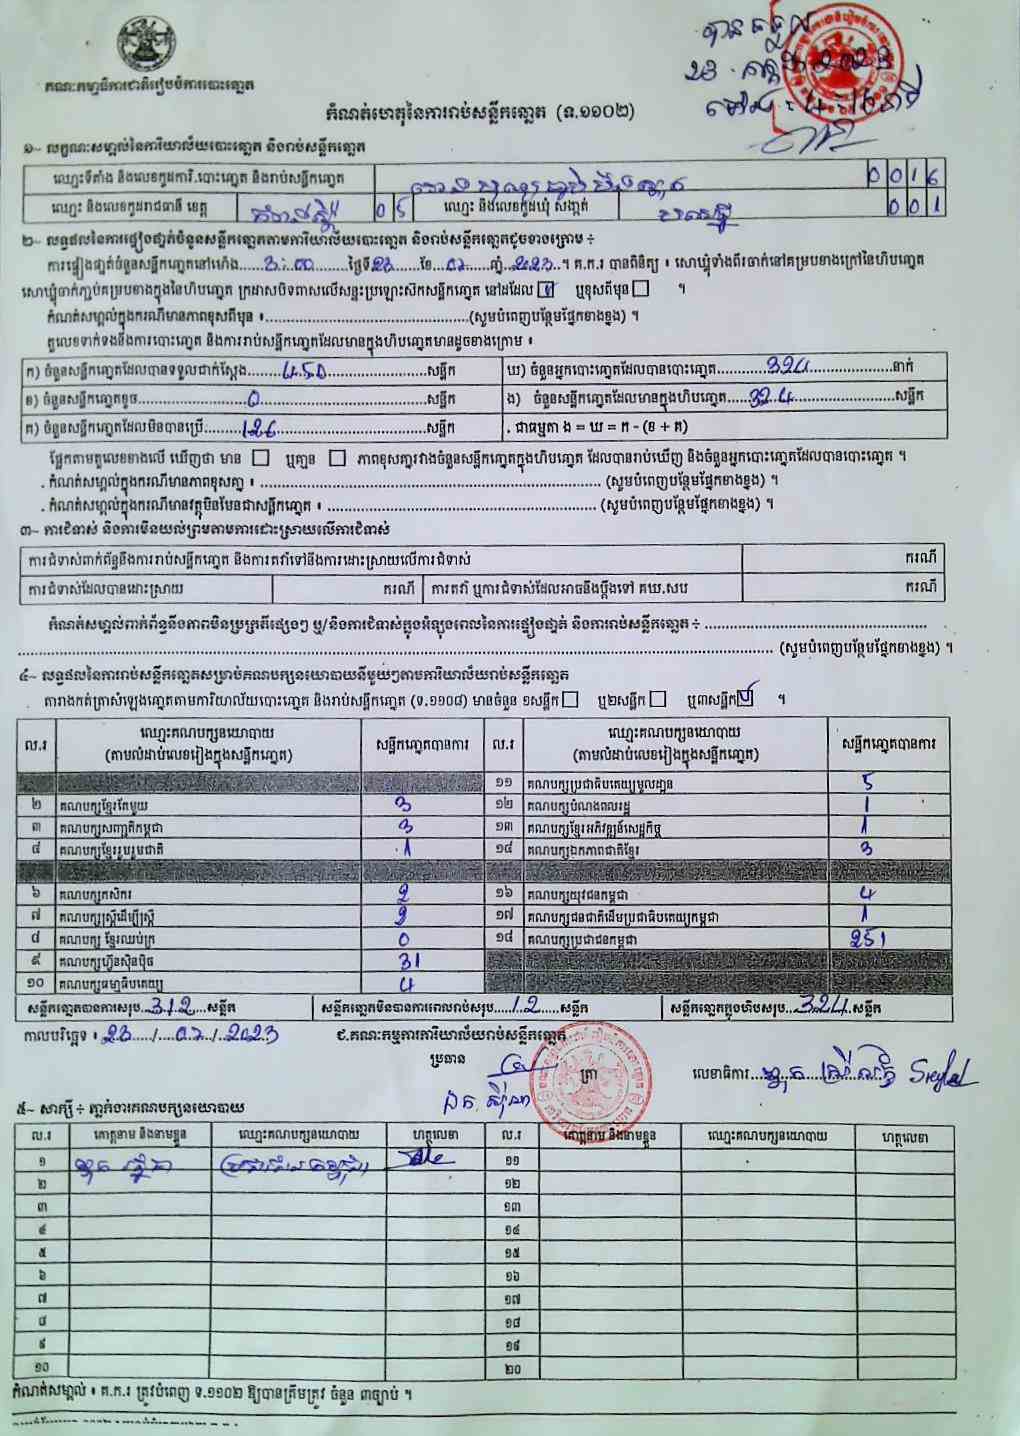 គណៈកម្មាធិការជាតិរៀបចំការបោះឆ្នោត
បានទទួល
23 កក្កដា 2023
ម៉ោង
កំណត់ហេតុនៃការរាប់សន្លឹកឆ្នោត (ទ.១១០២)
១~ លក្ខណៈសម្គាល់នៃការិយាល័យបោះឆ្នោត និងរាប់សន្លឹកឆ្នោត
ឈ្មោះទីតាំង និងលេខកូដការិ.បោះឆ្នោត និងរាប់សន្លឹកឆ្នោត 0016
ឈ្មោះ និងលេខកូដរាជធានី ខេត្ត កំពង់ស្ពឺ 05 ឈ្មោះ និងលេខកូដឃុំ សង្កាត់ 001
២~ លទ្ធផលនៃការផ្ទៀងផ្ទាត់ចំនួនសន្លឹកឆ្នោតតាមការិយាល័យបោះឆ្នោត និងរាប់សន្លឹកឆ្នោតដូចខាងក្រោម ÷
ការផ្ទៀងផ្ទាត់ចំនួនសន្លឹកឆ្នោតនៅម៉ោង...3:00...ថ្ងៃទី23...ខែ...07...ឆ្នាំ.2023.។ គ.ក.រ បានពិនិត្យ ៖ សោឃ្មុំទាំងពីរចាក់នៅគម្របខាងក្រៅនៃហិបឆ្នោត
សោឃ្មុំចាក់ភ្ជាប់គម្របខាងក្នុងនៃហិបឆ្នោត ក្រដាសបិទពាសលើសន្ទះប្រឡោះស៊កសន្លឹកឆ្នោត នៅដដែល ឬខុសពីមុន ។
កំណត់សម្គាល់ក្នុងករណីមានភាពខុសពីមុន ៖..........(សូមបំពេញបន្ថែមផ្នែកខាងខ្នង) ។
តួលេខទាក់ទងនឹងការបោះឆ្នោត និងការរាប់សន្លឹកឆ្នោតដែលមានក្នុងហិបឆ្នោតមានដូចខាងក្រោម ៖
ក) ចំនួនសន្លឹកឆ្នោតដែលបានទទួលជាក់ស្តែង......450......សន្លឹក ឃ) ចំនួនអ្នកបោះឆ្នោតដែលបានបោះឆ្នោត......324......នាក់
ខ) ចំនួនសន្លឹកឆ្នោតខូច......0......សន្លឹក ង) ចំនួនសន្លឹកឆ្នោតដែលមានក្នុងហិបឆ្នោត......324......សន្លឹក
គ) ចំនួនសន្លឹកឆ្នោតដែលមិនបានប្រើ......126......សន្លឹក . ជាធម្មតា ង = ឃ = ក - (ខ + គ)
ផ្អែកតាមតួលេខខាងលើ ឃើញថា មាន ឬគ្មាន ភាពខុសគ្នារវាងចំនួនសន្លឹកឆ្នោតក្នុងហិបឆ្នោត ដែលបានរាប់ឃើញ និងចំនួនអ្នកបោះឆ្នោតដែលបានបោះឆ្នោត ។
. កំណត់សម្គាល់ក្នុងករណីមានភាពខុសគ្នា ៖ .......... (សូមបំពេញបន្ថែមផ្នែកខាងខ្នង) ។
. កំណត់សម្គាល់ក្នុងករណីមានវត្ថុមិនមែនជាសន្លឹកឆ្នោត ៖ .......... (សូមបំពេញបន្ថែមផ្នែកខាងខ្នង) ។
៣~ ការជំទាស់ និងការមិនយល់ព្រមតាមការដោះស្រាយលើការជំទាស់
ការជំទាស់ពាក់ព័ន្ធនឹងការរាប់សន្លឹកឆ្នោត និងការតវ៉ាទៅនឹងការដោះស្រាយលើការជំទាស់ ករណី
ការជំទាស់ដែលបានដោះស្រាយ ករណី ការតវ៉ា ឬការជំទាស់ដែលអាចនឹងប្តឹងទៅ គឃ.សប ករណី
កំណត់សម្គាល់ពាក់ព័ន្ធនឹងភាពមិនប្រក្រតីផ្សេងៗ ឬ/និងការជំទាស់ក្នុងអំឡុងពេលនៃការផ្ទៀងផ្ទាត់ និងការរាប់សន្លឹកឆ្នោត ÷ ..........
.......... (សូមបំពេញបន្ថែមផ្នែកខាងខ្នង) ។
៤~ លទ្ធផលនៃការរាប់សន្លឹកឆ្នោតសម្រាប់គណបក្សនយោបាយនីមួយៗតាមការិយាល័យរាប់សន្លឹកឆ្នោត
តារាងកត់ត្រាសំឡេងឆ្នោតតាមការិយាល័យបោះឆ្នោត និងរាប់សន្លឹកឆ្នោត (ទ.១១០៨) មានចំនួន ១សន្លឹក ឬ២សន្លឹក ឬ៣សន្លឹក ។
ល.រ ឈ្មោះគណបក្សនយោបាយ (តាមលំដាប់លេខរៀងក្នុងសន្លឹកឆ្នោត) សន្លឹកឆ្នោតបានការ ល.រ ឈ្មោះគណបក្សនយោបាយ (តាមលំដាប់លេខរៀងក្នុងសន្លឹកឆ្នោត) សន្លឹកឆ្នោតបានការ
១១ គណបក្សប្រជាធិបតេយ្យមូលដ្ឋាន 5
២ គណបក្សខ្មែរតែមួយ 3 ១២ គណបក្សបំណងពលរដ្ឋ 1
៣ គណបក្សសញ្ជាតិកម្ពុជា 3 ១៣ គណបក្សខ្មែរអភិវឌ្ឍន៍សេដ្ឋកិច្ច 1
៤ គណបក្សខ្មែររួបរួមជាតិ 1 ១៤ គណបក្សឯកភាពជាតិខ្មែរ 3
៦ គណបក្សកសិករ 2 ១៦ គណបក្សយុវជនកម្ពុជា 4
៧ គណបក្សស្ត្រីដើម្បីស្ត្រី 9 ១៧ គណបក្សជនជាតិដើមប្រជាធិបតេយ្យកម្ពុជា 1
៨ គណបក្ស ខ្មែរឈប់ក្រ 0 ១៨ គណបក្សប្រជាជនកម្ពុជា 251
៩ គណបក្សហ៊្វុនស៊ិនប៉ិច 31
១០ គណបក្សធម្មាធិបតេយ្យ 4
សន្លឹកឆ្នោតបានការសរុប..312...សន្លឹក សន្លឹកឆ្នោតមិនបានការពេលរាប់សរុប....12....សន្លឹក សន្លឹកឆ្នោតក្នុងហិបសរុប..324..សន្លឹក
កាលបរិច្ឆេទ ៖ 23 / 07 / 2023 ជ.គណៈកម្មការការិយាល័យរាប់សន្លឹកឆ្នោត
ប្រធាន ត្រា លេខាធិការ
៥~ សាក្សី ÷ ភ្នាក់ងារគណបក្សនយោបាយ
ល.រ គោត្តនាម និងនាមខ្លួន ឈ្មោះគណបក្សនយោបាយ ហត្ថលេខា ល.រ គោត្តនាម និងនាមខ្លួន ឈ្មោះគណបក្សនយោបាយ ហត្ថលេខា
១ ប្រជាជនកម្ពុជា ១១
២ ១២
៣ ១៣
៤ ១៤
៥ ១៥
៦ ១៦
៧ ១៧
៨ ១៨
៩ ១៩
១០ ២០
កំណត់សម្គាល់ ៖ គ.ក.រ ត្រូវបំពេញ ទ.១១០២ ឱ្យបានត្រឹមត្រូវ ចំនួន ៣ច្បាប់ ។